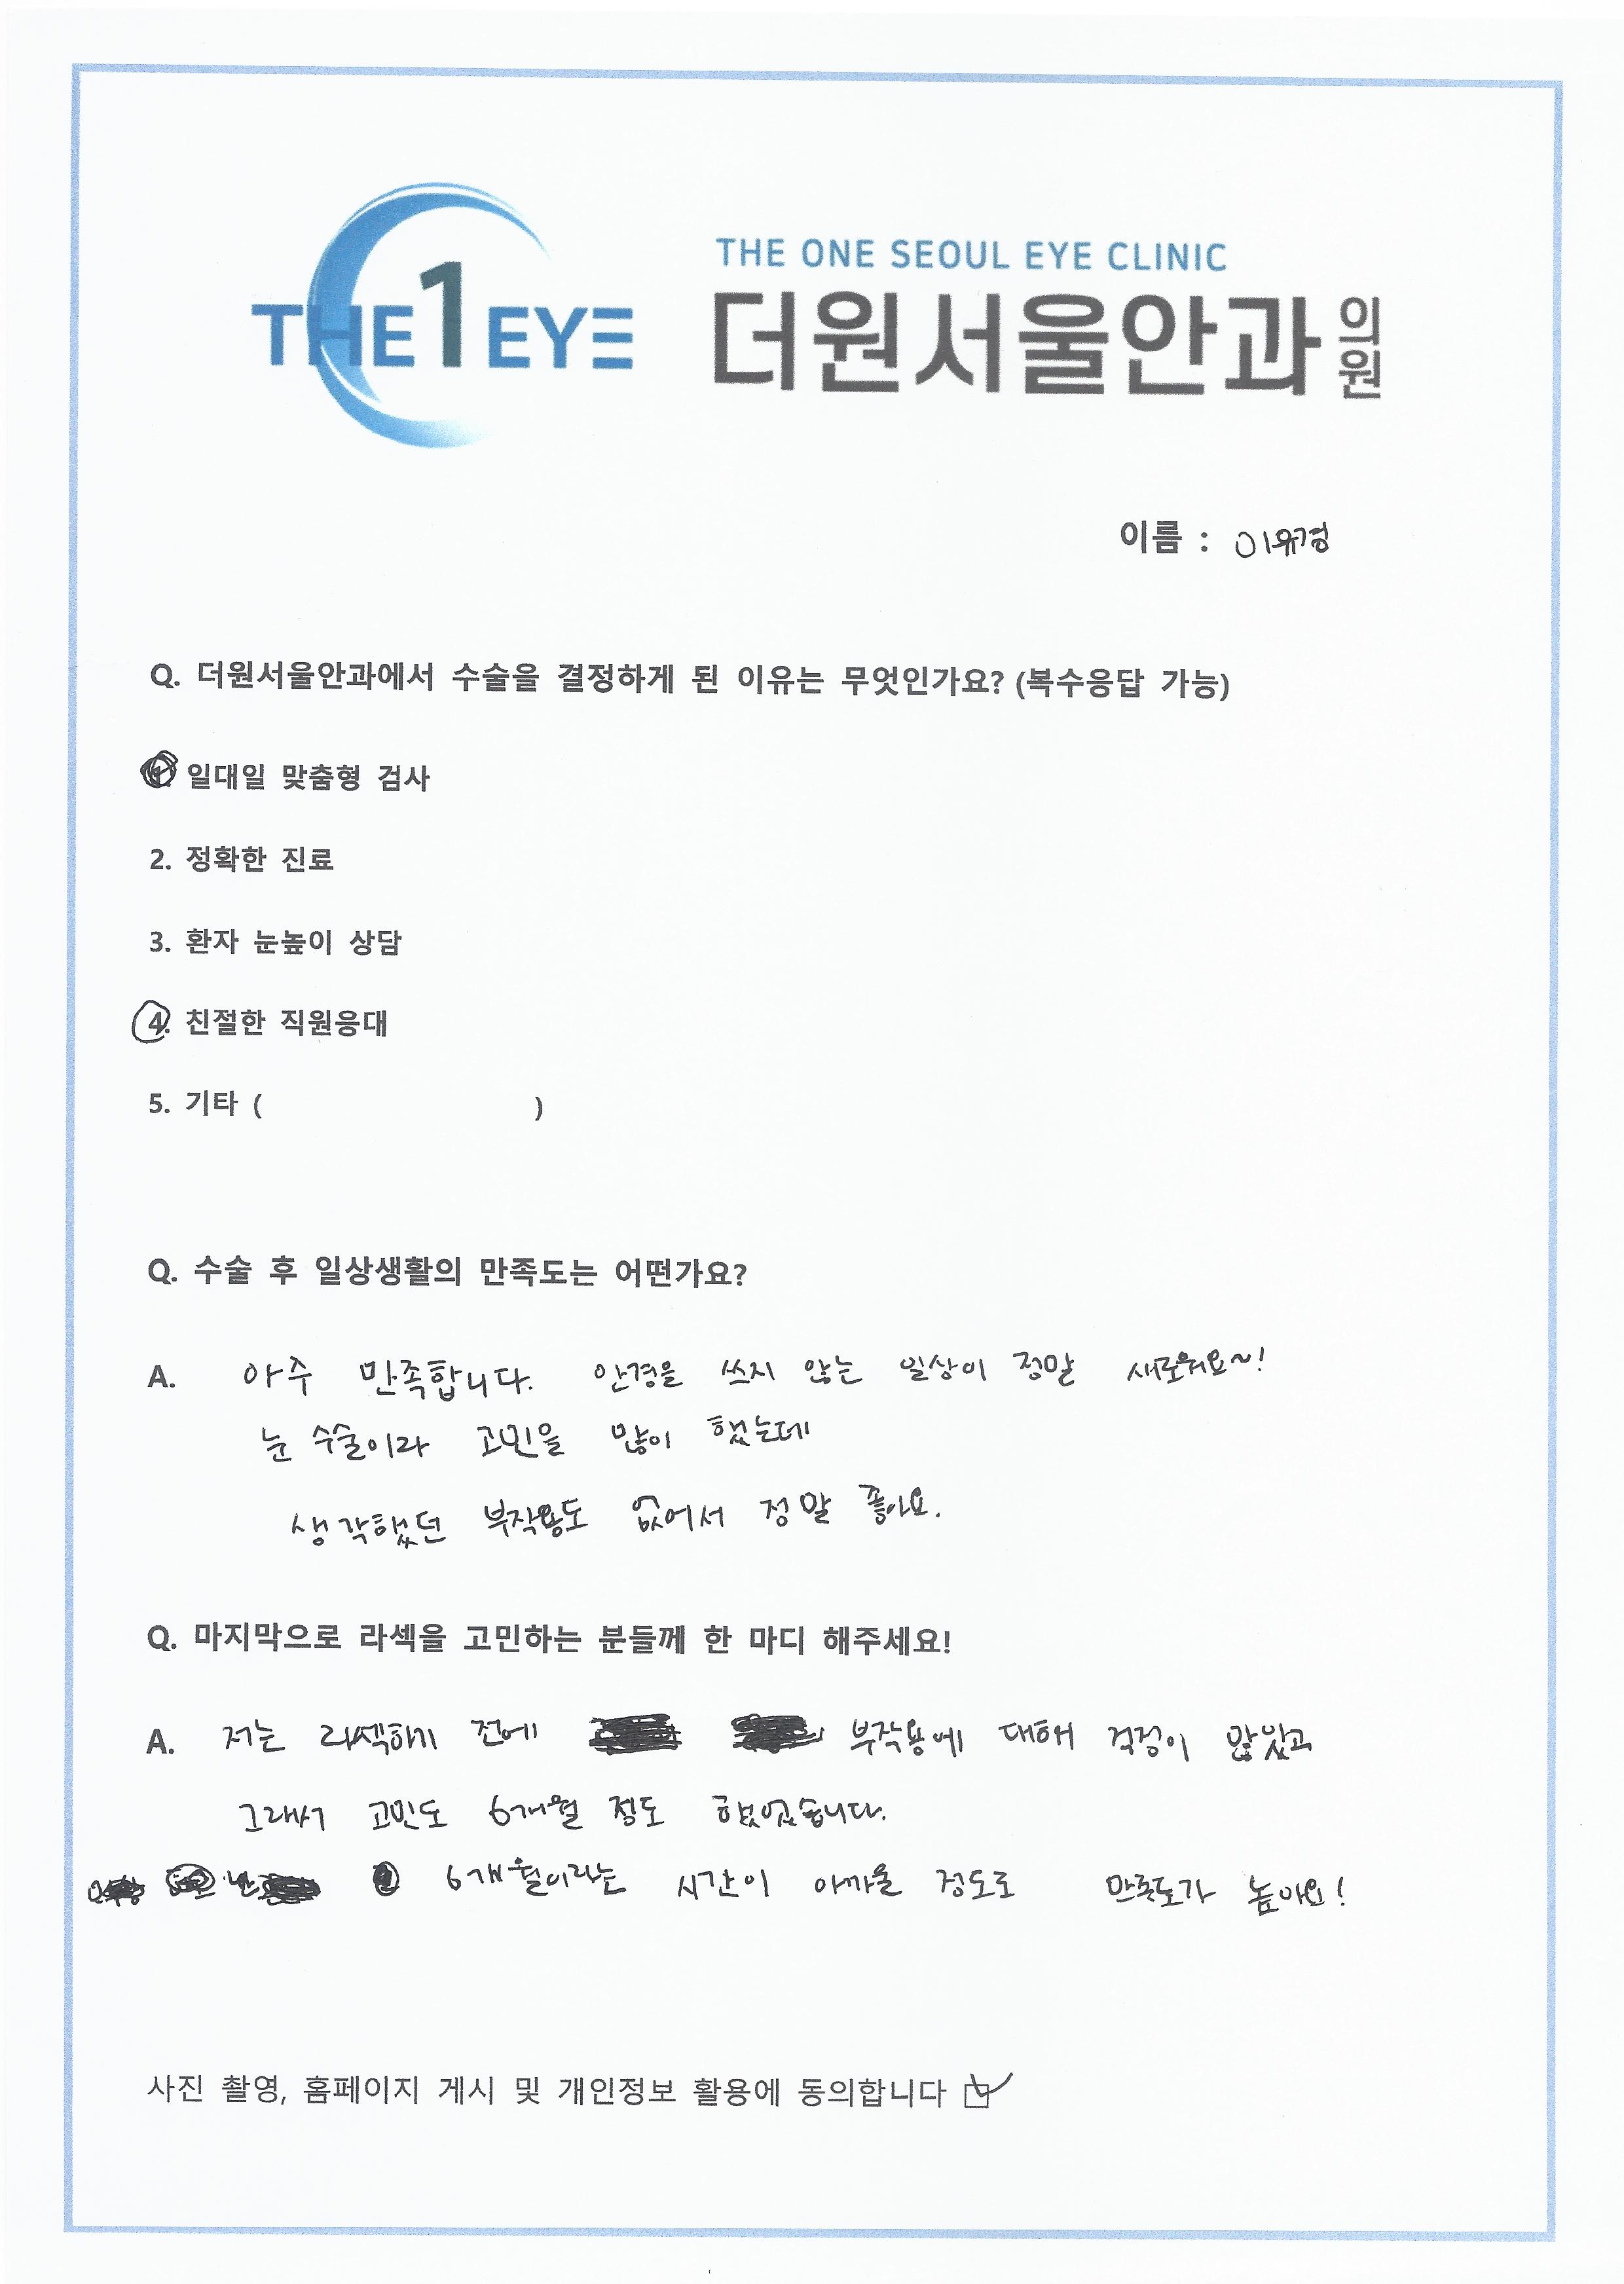 THE 1 EYE
THE ONE SEOUL EYE CLINIC
더원서울안과의원
이름 : 이유경
Q. 더원서울안과에서 수술을 결정하게 된 이유는 무엇인가요? (복수응답 가능)
1. 일대일 맞춤형 검사
2. 정확한 진료
3. 환자 눈높이 상담
4. 친절한 직원응대
5. 기타 ( )
Q. 수술 후 일상생활의 만족도는 어떤가요?
A. 아주 만족합니다. 안경을 쓰지 않는 일상이 정말 새로워요~!
눈 수술이라 고민을 많이 했는데
생각했던 부작용도 없어서 정말 좋아요.
Q. 마지막으로 라섹을 고민하는 분들께 한 마디 해주세요!
A. 저는 라섹하기 전에 부작용에 대해 걱정이 많았고
그래서 고민도 6개월 정도 했었습니다.
6개월이라는 시간이 아까울 정도로 만족도가 높아요!
사진 촬영, 홈페이지 게시 및 개인정보 활용에 동의합니다